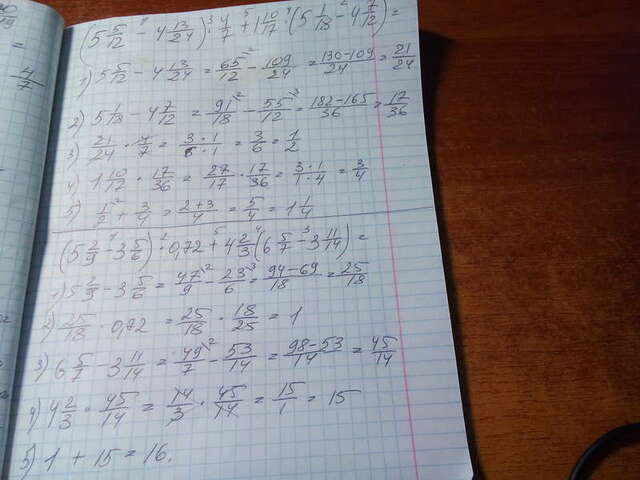 =
4/7
(5 5/12 - 4 13/24) · 4/7 + 1 10/17 · (5 1/18 - 4 7/12) =
1) 5 5/12 - 4 13/24 = 65/12 - 109/24 = 130-109/24 = 21/24
2) 5 1/18 - 4 7/12 = 91/18 - 55/12 = 182-165/36 = 17/36
3) 21/24 · 4/7 = 3·1/6·1 = 3/6 = 1/2
4) 1 10/17 · 17/36 = 27/17 · 17/36 = 3·1/1·4 = 3/4
5) 1/2 + 3/4 = 2+3/4 = 5/4 = 1 1/4
(5 2/9 - 3 5/6) · 0,72 + 4 2/3 (6 5/7 - 3 11/14) =
1) 5 2/9 - 3 5/6 = 47/9 - 23/6 = 94-69/18 = 25/18
2) 25/18 · 0,72 = 25/18 · 18/25 = 1
3) 6 5/7 - 3 11/14 = 49/7 - 53/14 = 98-53/14 = 45/14
4) 4 2/3 · 45/14 = 14/3 · 45/14 = 15/1 = 15
5) 1 + 15 = 16.